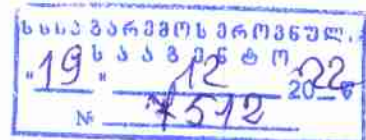 სსიპ გარემოს ეროვნული
სააგენტო
"19" 12 2022 წ
№ 7512